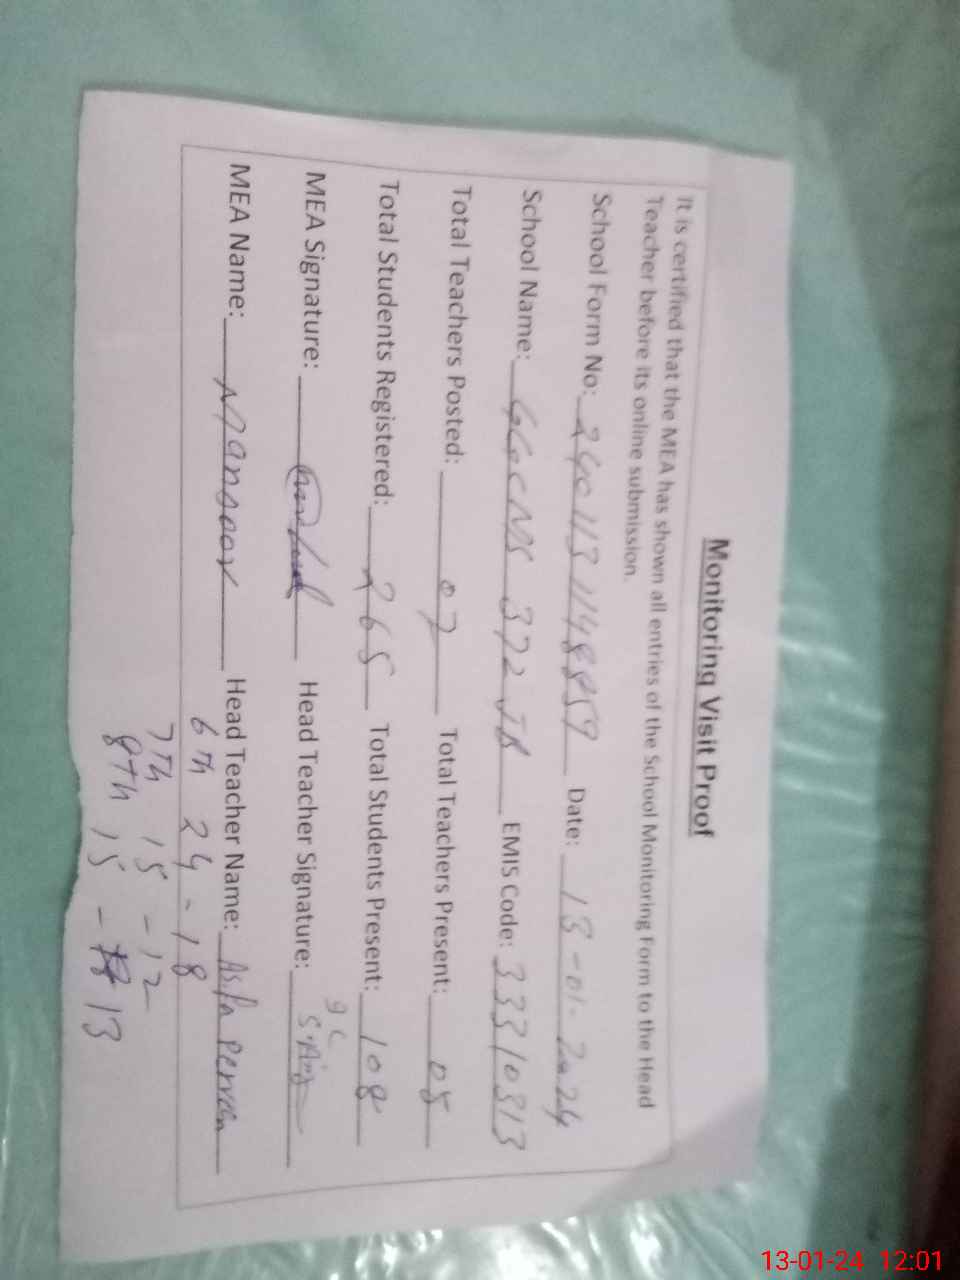 Monitoring Visit Proof
It is certified that the MEA has shown all entries of the School Monitoring Form to the Head
Teacher before its online submission.
School Form No: 2401131148859 Date: 13-01-2024
School Name: 372 JB EMIS Code: 33310313
Total Teachers Posted: 07 Total Teachers Present: 05
Total Students Registered: 265 Total Students Present: 108
MEA Signature: Head Teacher Signature:
MEA Name: Mansoor Head Teacher Name: Perveen
6th 24 - 18
7th 15 - 12
8th 15 - 13
13-01-24 12:01